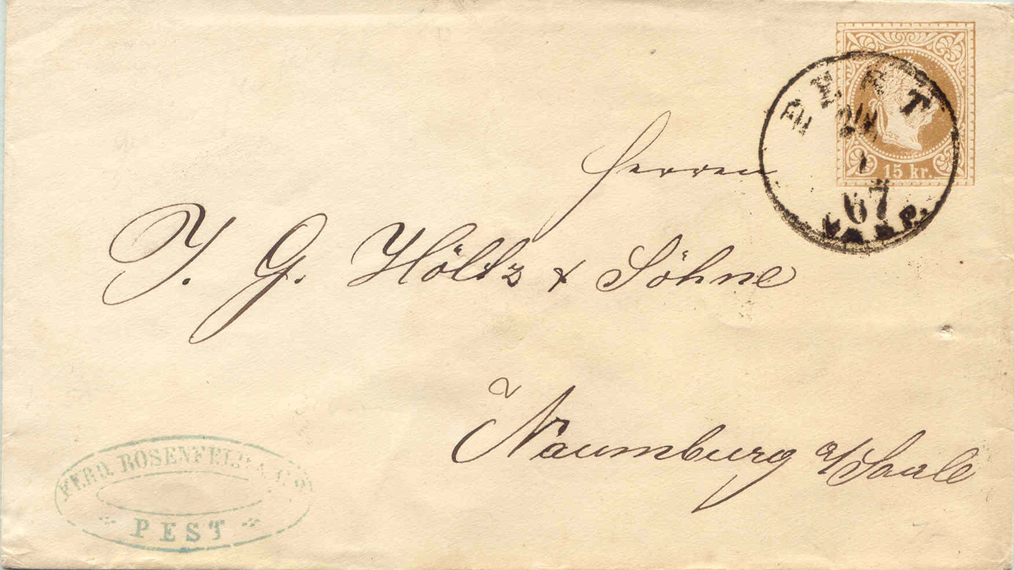 15 kr.
PEST
67
Herren
J. G. Höltz & Söhne
Naumburg a/Saale
FERD. ROSENFELD & Co.
PEST